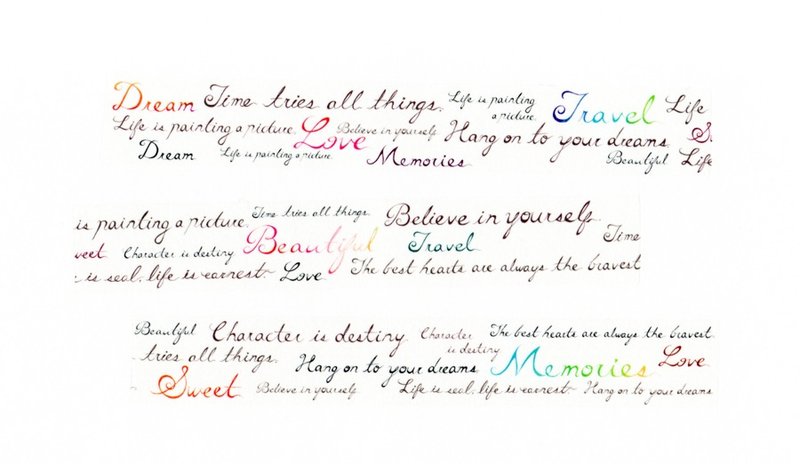 Dream Time tries all things. Life is painting a picture. Travel Life
Life is painting a picture. Love Believe in yourself Hang on to your dreams S
Dream Life is painting a picture. Memories Beautiful Life
is painting a picture. Time tries all things. Believe in yourself.
weet Character is destiny Beautiful Travel Time
is seal, life is earnest. Love The best hearts are always the bravest
Beautiful Character is destiny. Character is destiny The best hearts are always the bravest
tries all things. Hang on to your dreams Memories Love
Sweet Believe in yourself Life is seal, life is earnest. Hang on to your dreams